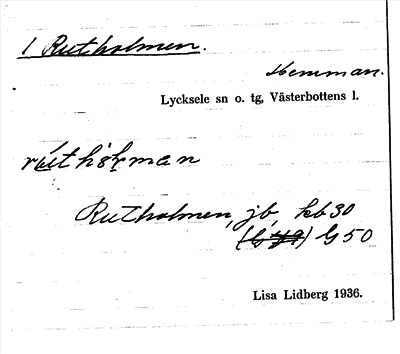 1 Rutholmen.
Hemman.
Lycksele sn o. tg, Västerbottens l.
Rutholmen, jb, kb 30
G 50
Lisa Lidberg 1936.